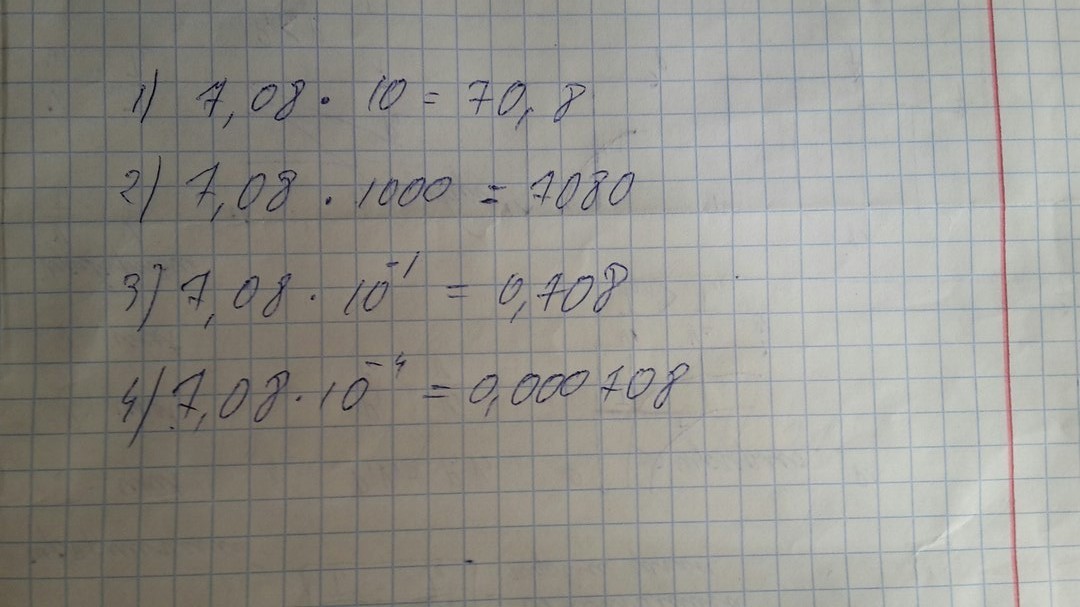 1) 7,08 · 10 = 70,8
2) 7,08 · 1000 = 7080
3) 7,08 · 10⁻¹ = 0,708
4) 7,08 · 10⁻⁴ = 0,000708